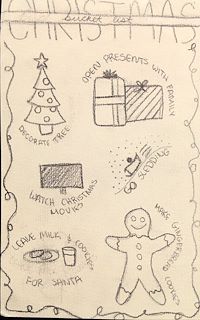 CHRISTMAS
bucket list
DECORATE TREE
OPEN PRESENTS WITH FAMILY
WATCH CHRISTMAS
MOVIES
SLEDDING
LEAVE MILK & COOKIES
FOR SANTA
MAKE GINGERBREAD COOKIES